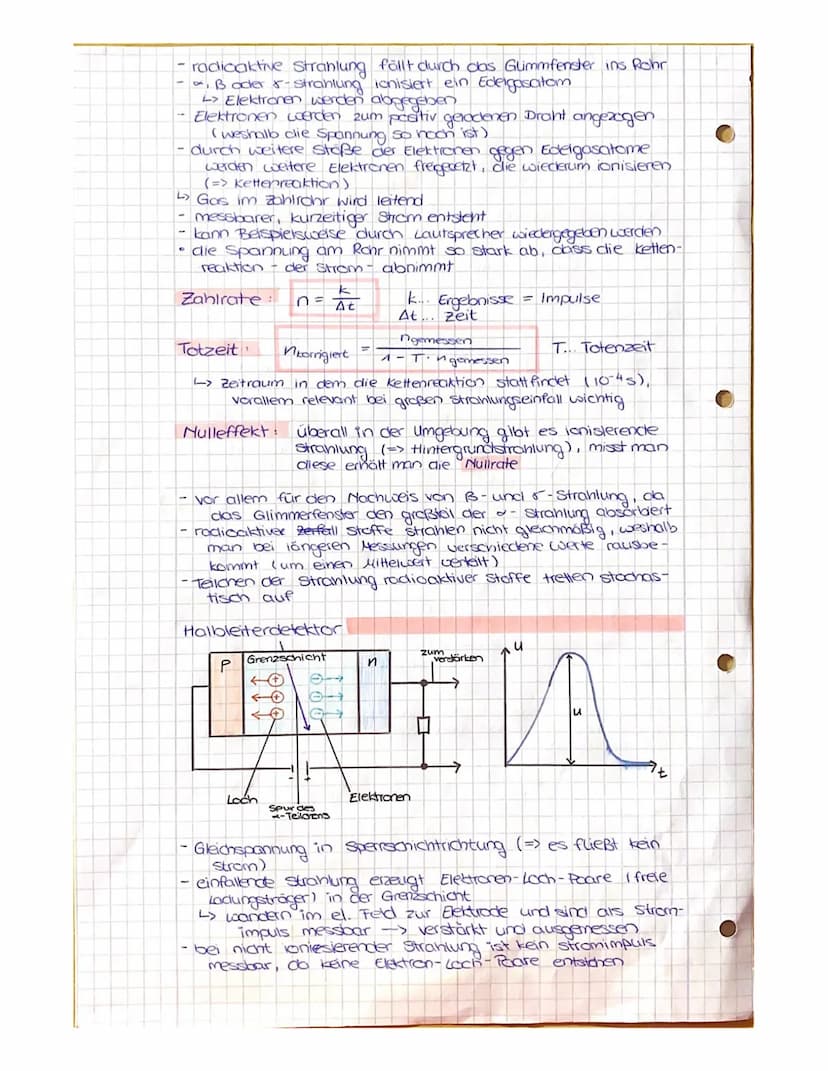 - radioaktive Strahlung fällt durch das Glimmfenster ins Rohr
- α, β oder γ-Strahlung ionisiert ein Edelgasatom
↳ Elektronen werden abgegeben
- Elektronen werden zum positiv geladenen Draht angezogen
(weshalb die Spannung so hoch ist)
- durch weitere Stöße der Elektronen gegen Edelgasatome
werden weitere Elektronen freigesetzt, die wiederum ionisieren
(=> Kettenreaktion)
↳ Gas im Zählrohr wird leitend
- messbarer, kurzeitiger Strom entsteht
- kann Beispielsweise durch Lautsprecher wiedergegeben werden
• die Spannung am Rohr nimmt so stark ab, dass die Ketten-
reaktion - der Strom - abnimmt
Zählrate: n = k/Δt k... Ergebnisse = Impulse
Δt... Zeit
Totzeit: nkorrigiert = ngemessen / 1 - T · ngemessen T... Totenzeit
↳ Zeitraum in dem die Kettenreaktion stattfindet (10⁻⁴s),
vorallem relevant bei großen Strahlungseinfall wichtig
Nulleffekt: überall in der Umgebung gibt es ionisierende
Strahlung (=> Hintergrundstrahlung), misst man
diese erhält man die Nullrate
- vor allem für den Nachweis von β- und γ-Strahlung, da
das Glimmerfenster den großteil der α-Strahlung absorbiert
- radioaktiver Zerfall Stoffe strahlen nicht gleichmäßig, weshalb
man bei längeren Messungen verschiedene Werte rausbe-
kommt (um einen Mittelwert verteilt)
- Teilchen der Strahlung radioaktiver Stoffe treten stochas-
tisch auf
Halbleiterdetektor
P Grenzschicht n
zum verstärken
U
u
t
Loch
Spur des
α-Teilchens
Elektronen
- Gleichspannung in Sperrschichtrichtung (=> es fließt kein
Strom)
- einfallende Strahlung erzeugt Elektronen-Loch-Paare (freie
Ladungsträger) in der Grenzschicht
↳ wandern im el. Feld zur Elektrode und sind als Strom-
impuls messbar --> verstärkt und ausgemessen
- bei nicht ionisierender Strahlung ist kein Stromimpuls
messbar, da keine Elektron-Loch-Paare entstehen